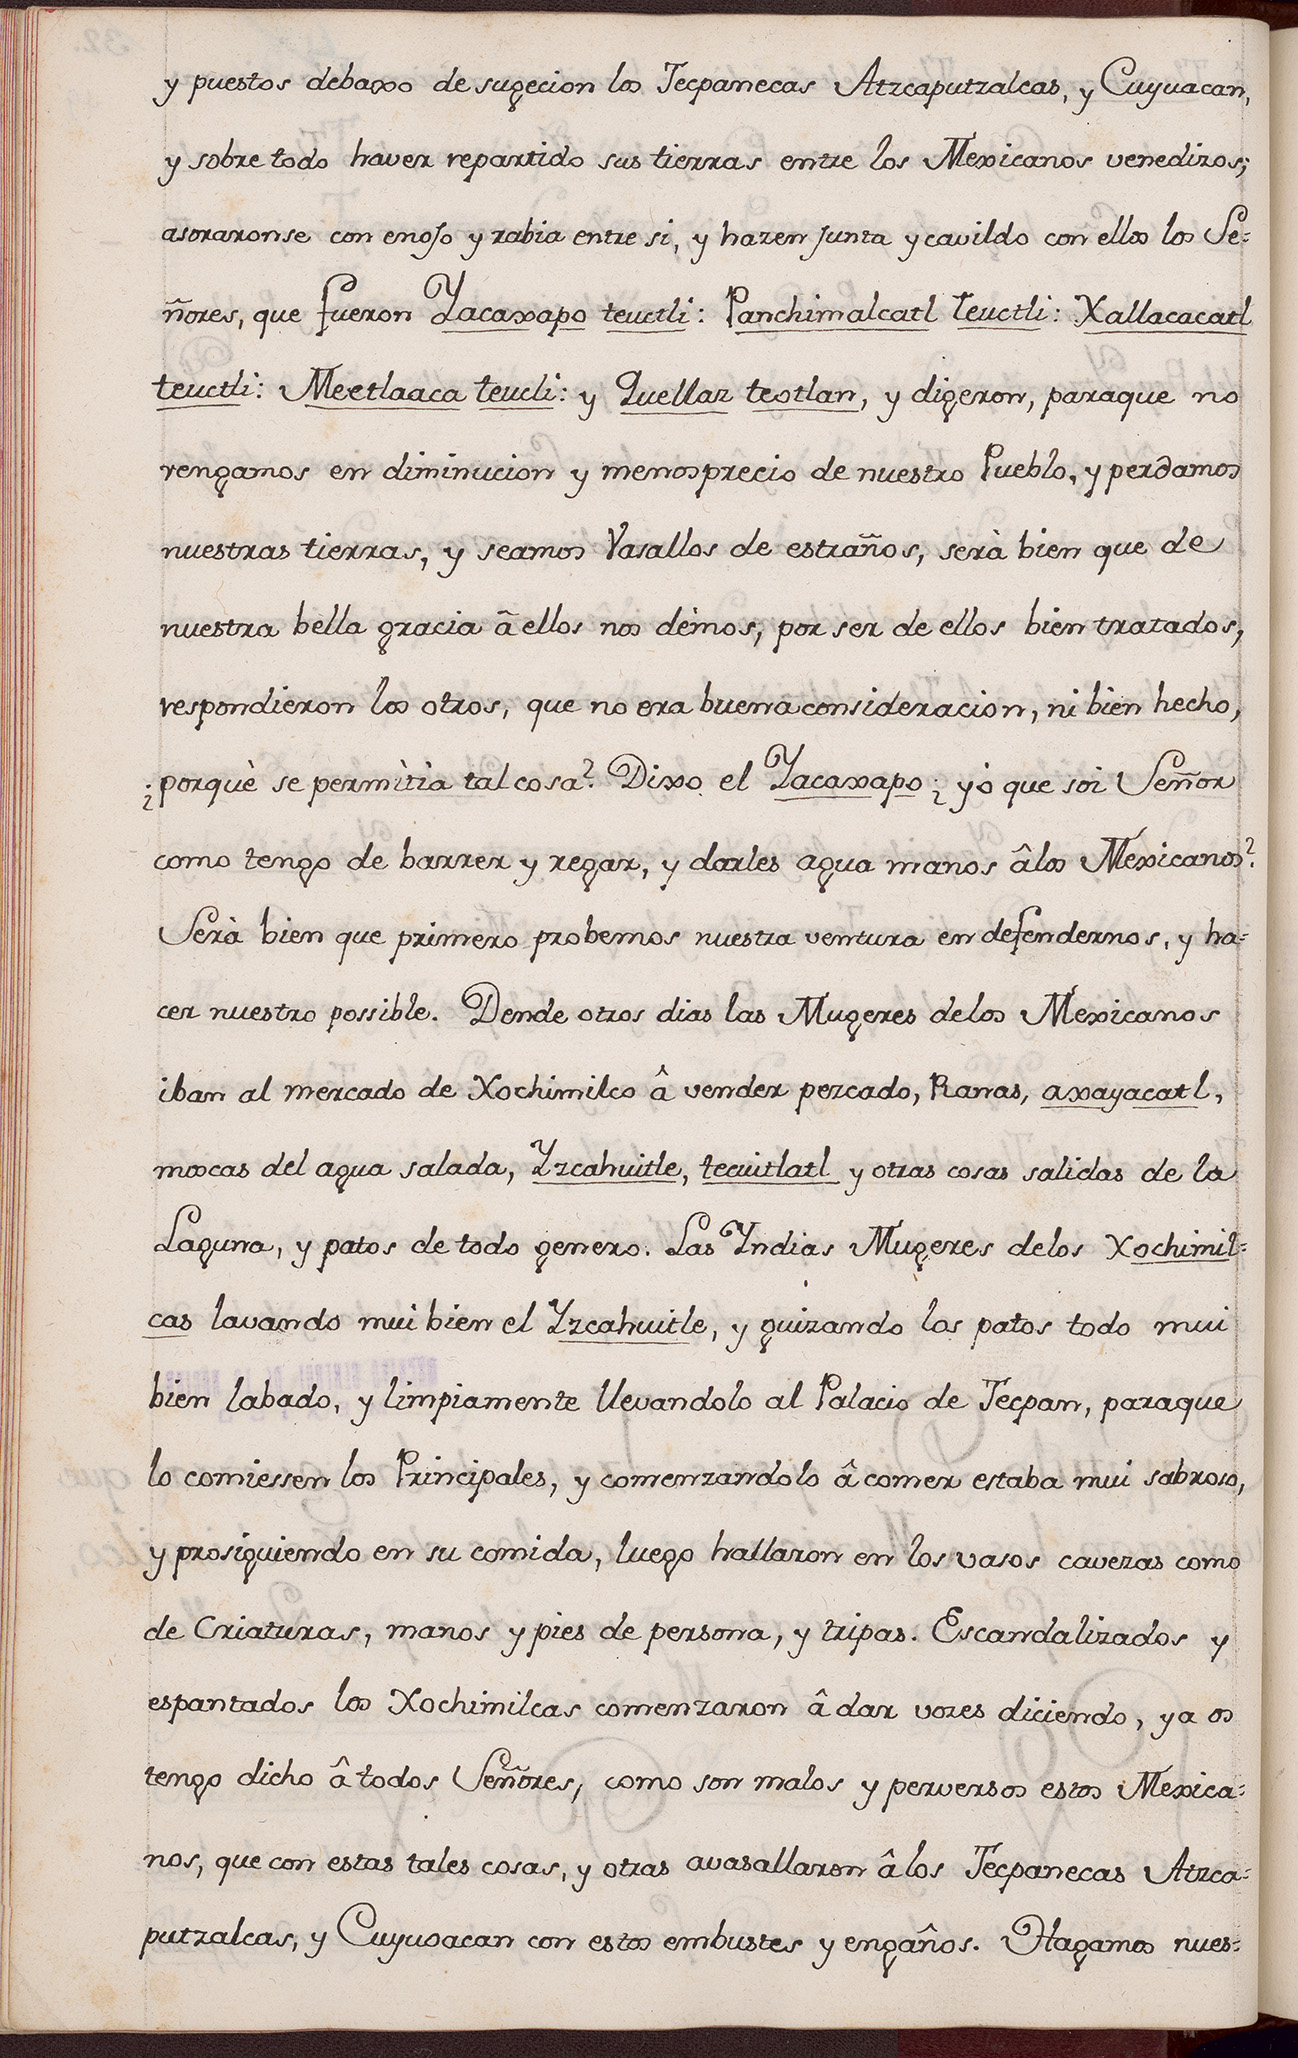 y puestos debaxo de sugecion los Tecpanecas Atzcaputzalcas, y Cuyuacan,
y sobre todo haver repartido sus tierras entre los Mexicanos venedizos;
asoraronse con enojo y rabia entre si, y hazen junta y cavildo con ellos los Se=
ñores, que fueron Yacaxapo teuctli: Panchimalcatl teuctli: Xallacacatl
teuctli: Meetlaaca teucli: y Quellaz teotlan, y digeron, paraque no
vengamos en diminucion y menosprecio de nuestro Pueblo, y perdamos
nuestras tierras, y seamos Vasallos de estraños, serà bien que de
nuestra bella gracia â ellos nos dèmos, por ser de ellos bien tratados,
respondieron los otros, que no era buena consideracion, ni bien hecho,
¿porquè se permìtìa tal cosa? Dixo el Yacaxapo ¿ yo que soi Señor
como tengo de barrer y regar, y darles agua manos âlos Mexicanos?
Serà bien que primero probemos nuestra ventura en defendernos, y ha=
cer nuestro possible. Dende otros dias las Mugeres delos Mexicanos
iban al mercado de Xochimilco â vender pezcado, Ranas, axayacatl,
moscas del agua salada, Yzcahuitle, tecuitlatl y otras cosas salidas de la
Laguna, y patos de todo genero. Las Yndias Mugeres delos Xochimil=
cas lavando mui bien el Yzcahuitle, y guizando los patos todo mui
bien labado, y limpiamente llevandolo al Palacio de Tecpan, paraque
lo comiessen los Principales, y comenzandolo â comer estaba mui sabroso,
y prosiguiendo en su comida, luego hallaron en los vasos cavezas como
de Criaturas, manos y pies de persona, y tripas. Escandalizados y
espantados los Xochimilcas comenzaron â dar vozes diciendo, ya os
tengo dicho â todos Señores, como son malos y perversos estos Mexica=
nos, que con estas tales cosas, y otras avasallaron âlos Tecpanecas Atzca=
putzalcas, y Cuyuoacan con estos embustes y engaños. Hagamos nues=